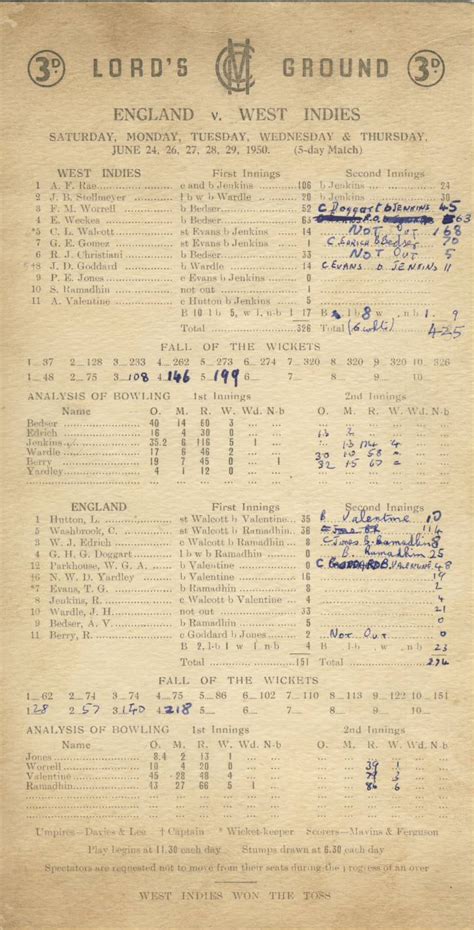 3D. LORD'S MCC GROUND 3D.
ENGLAND v. WEST INDIES
SATURDAY, MONDAY, TUESDAY, WEDNESDAY & THURSDAY,
JUNE 24, 26, 27, 28, 29, 1950. (5-day Match)
WEST INDIES First Innings Second Innings
1 A. F. Rae c and b Jenkins 106 b Jenkins 24
2 J. B. Stollmeyer l b w b Wardle 20 b Jenkins 30
3 F. M. Worrell b Bedser 52 C Doggart b JENKINS 45
4 E. Weekes b Bedser 63 63
*5 C. L. Walcott st Evans b Jenkins 14 NOT OUT 168
7 G. E. Gomez st Evans b Jenkins 1 C Edrich b Bedser 70
6 R. J. Christiani b Bedser 33 NOT OUT 5
†8 J. D. Goddard b Wardle 14 C EVANS b JENKINS 11
9 P. E. Jones c Evans b Jenkins 0
10 S. Ramadhin not out 1
11 A. Valentine c Hutton b Jenkins 5
B 10 l-b 5, w 1, n-b 1 17 B l-b 8 w , n-b 1 . 9
Total 326 Total (6 wkts) 425
FALL OF THE WICKETS
1—37 2—128 3—233 4—262 5—273 6—274 7—320 8—320 9—320 10—326
1—48 2—75 3—108 4—146 5—199 6— 7— 8— 9— 10—
ANALYSIS OF BOWLING 1st Innings 2nd Innings
Name O. M. R. W. Wd. N-b O. M. R. W. Wd. N-b
Bedser 40 14 60 3
Edrich 16 4 30 0
Jenkins 35.2 6 116 5 1 174 4
Wardle 17 6 46 2 30 10 58
Berry 19 7 45 0 1 32 15 67
Yardley 4 1 12 0
ENGLAND First Innings Second Innings
1 Hutton, L. st Walcott b Valentine 35 B. Valentine 10
5 Washbrook, C. st Walcott b Ramadhin 36 114
3 W. J. Edrich c Walcott b Ramadhin 8 C Jones B Ramadhin 8
4 G. H. G. Doggart l b w b Ramadhin 0 B. Ramadhin 25
12 Parkhouse, W. G. A. b Valentine 0 C GODDARD B. VALENTINE 48
†6 N. W. D. Yardley b Valentine 16 19
*7 Evans, T. G. b Ramadhin 8 2
8 Jenkins, R. c Walcott b Valentine 4 4
10 Wardle, J. H. not out 33 21
9 Bedser, A. V. b Ramadhin 5 0
11 Berry, R. c Goddard b Jones 2 Not Out 0
B 2, l-b 1, w 1, n-b 4 B l-b w , n-b 23
Total 151 Total 274
FALL OF THE WICKETS
1—62 2—74 3—74 4—75 5—86 6—102 7—110 8—113 9—122 10—151
1—28 2—57 3—140 4—218 5— 6— 7— 8— 9— 10—
ANALYSIS OF BOWLING 1st Innings 2nd Innings
Name O. M. R. W. Wd. N-b O. M. R. W. Wd. N-b
Jones 8.4 2 13 1
Worrell 10 4 20 0 39 1
Valentine 45 28 48 4 79 3
Ramadhin 43 27 66 5 1 86 6
Umpires—Davies & Lee † Captain * Wicket-keeper Scorers—Mavins & Ferguson
Play begins at 11.30 each day Stumps drawn at 6.30 each day
Spectators are requested not to move from their seats during the progress of an over
WEST INDIES WON THE TOSS